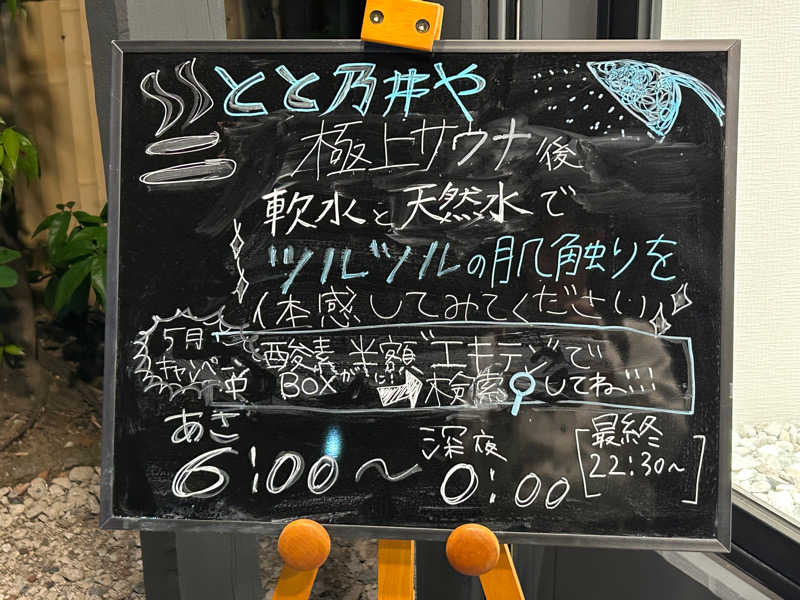 とと乃井や
極上サウナ後
軟水と天然水で
ツルツルの肌触りを
体感してみてください
5月キャンペーン中
酸素BOXが半額に!!
"エキテン"で検索してね!!!
あさ6:00〜深夜0:00
[最終22:30〜]